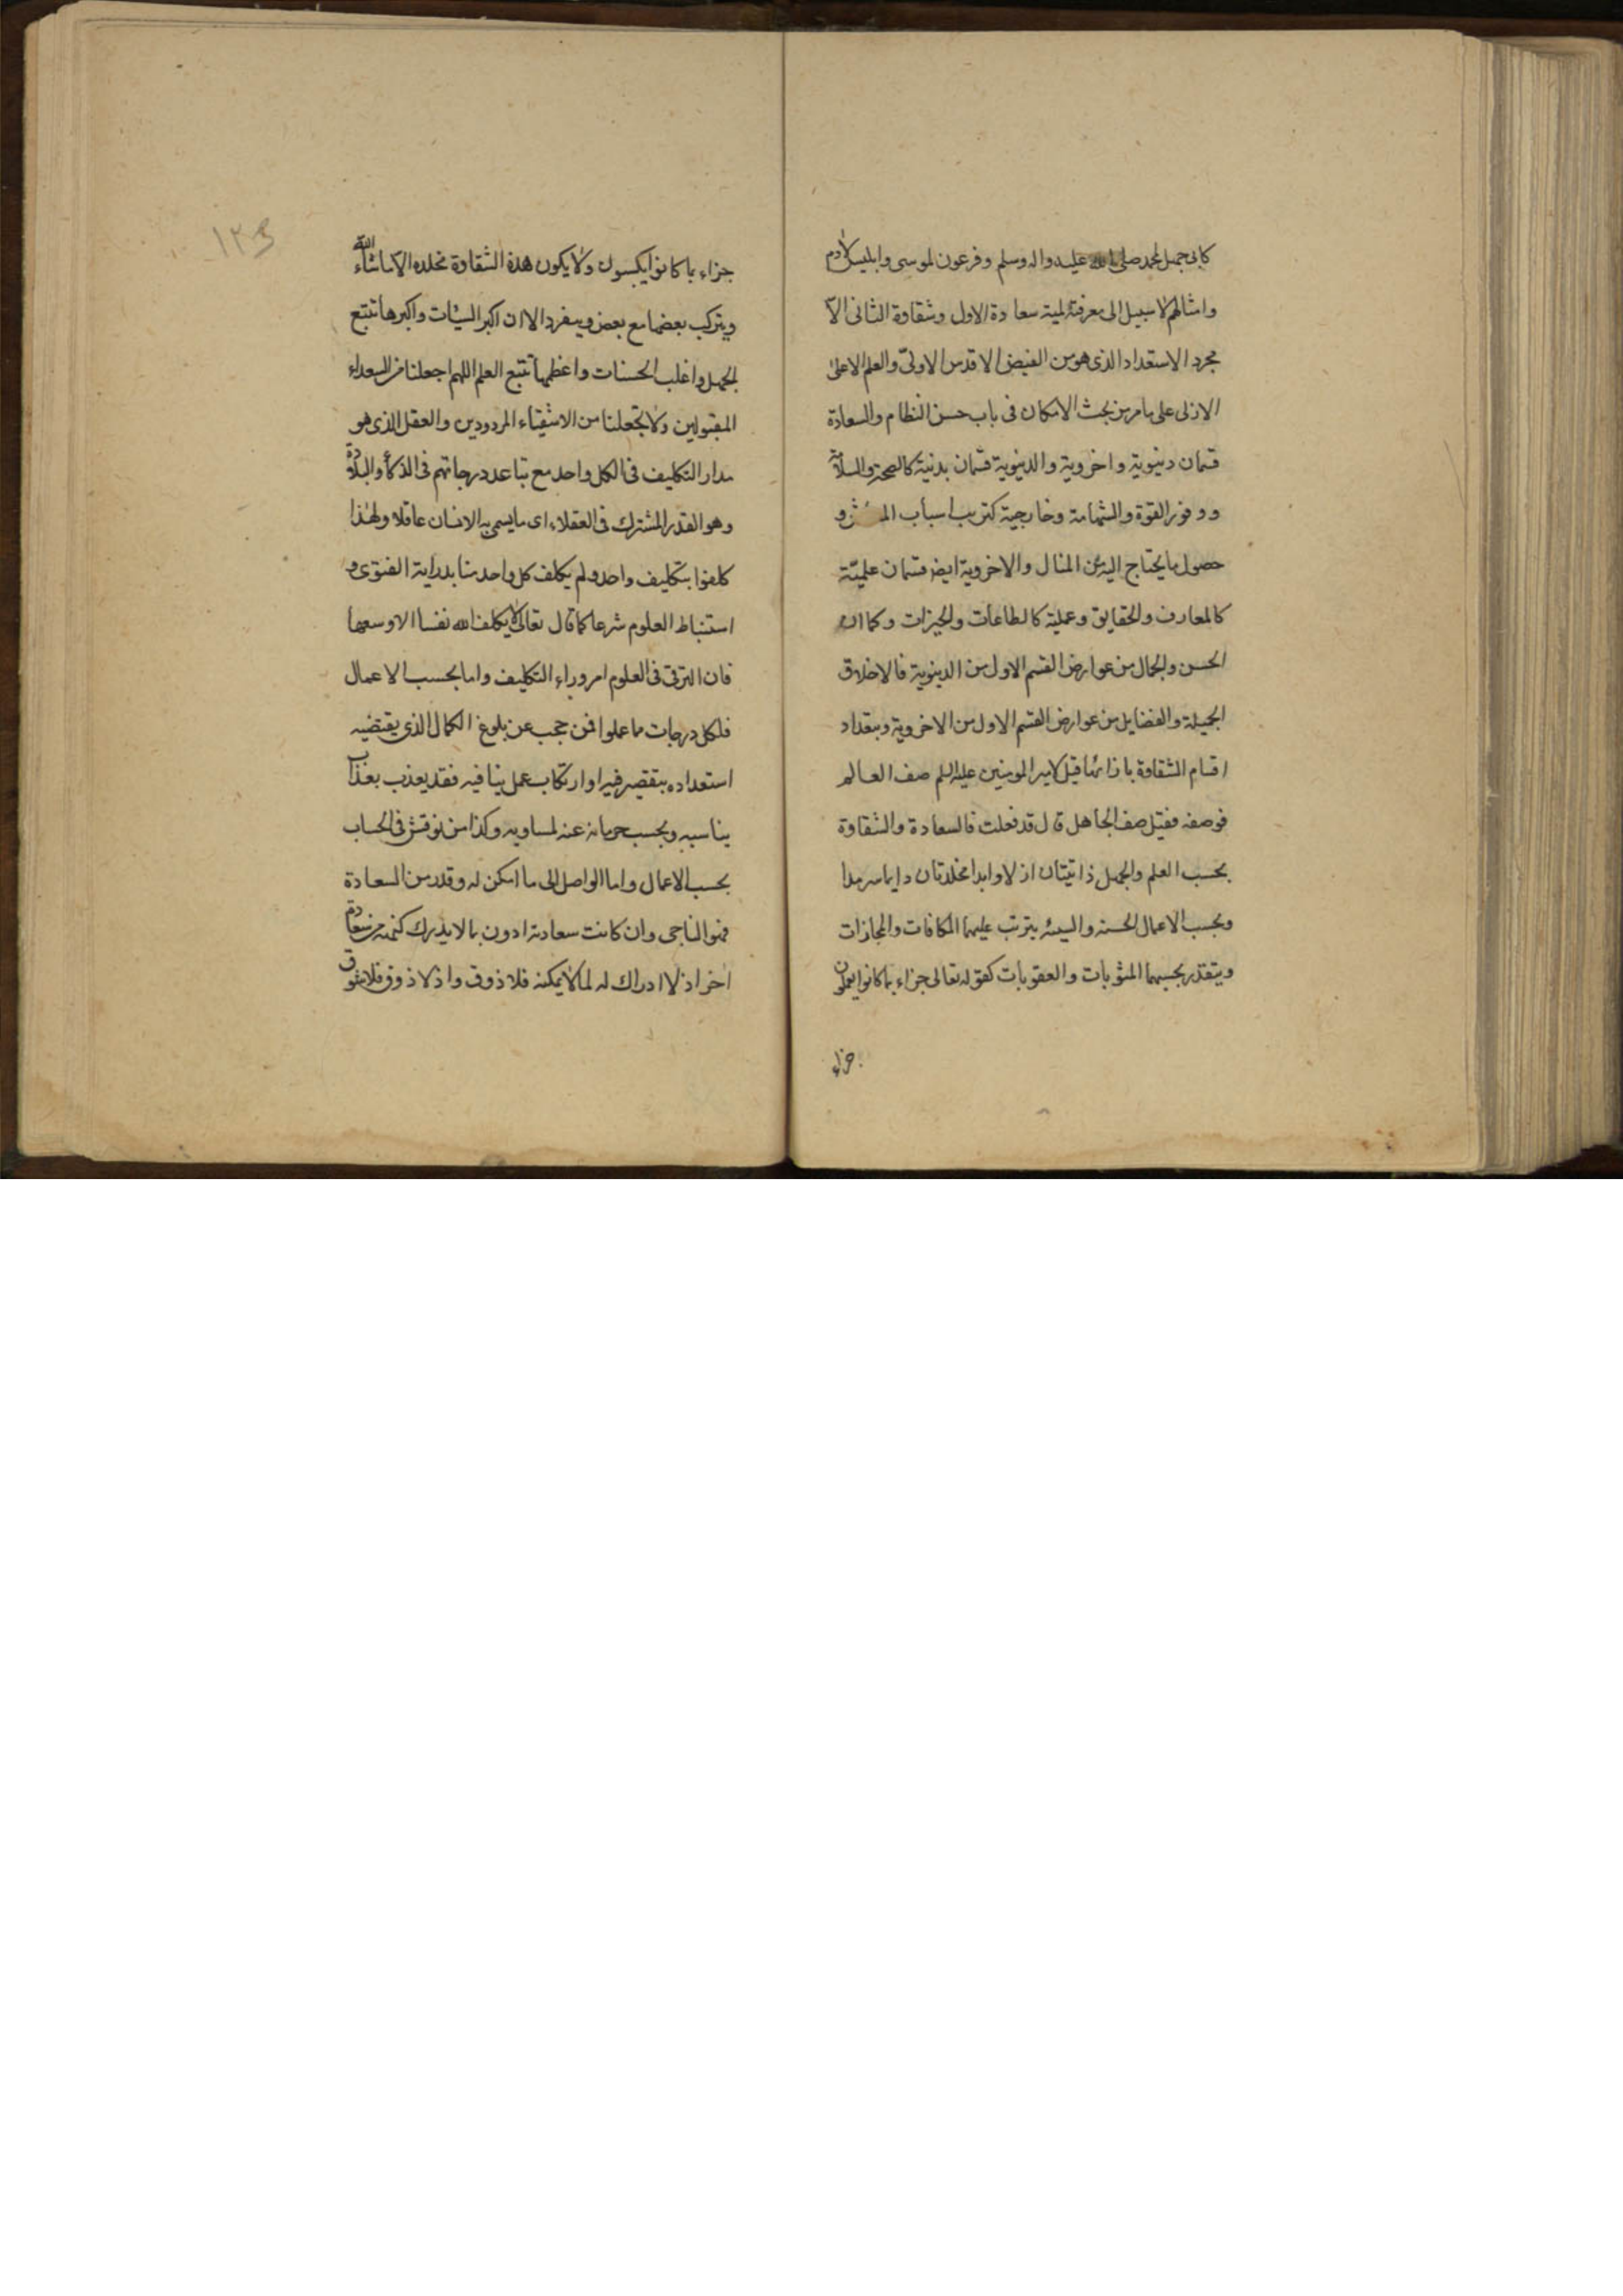 كابى جهل لمحمد صلى الله عليه واله وسلم وفرعون لموسى وابليس لادم
وامثالهم لا سبيل الى معرفة لمية سعادة الاول وشقاوة الثانى الا
مجرد الاستعداد الذى هو من الفيض الاقدس الاولىّ والعلم الاعلى
الازلى على ما مر من بحث الامكان فى باب حسن النظام والسعادة
قسمان دنيوية واخروية والدنيوية قسمان بدنية كالصحة والسلامة
ووفور القوة والشهامة وخارجية كترتب اسباب و
حصول ما يحتاج اليه من المنال والاخروية ايضا قسمان علميّة
كالمعارف والحقايق وعملية كالطاعات والخيرات وكما ان
الحسن والجمال من عوارض القسم الاول من الدنيوية فالاخلاق
الجميلة والفضايل من عوارض القسم الاول من الاخروية وبتعداد
اقسام الشقاوة بازائها قيل لامير المومنين عليه السلم صف العالم
فوصفه فقيل صف الجاهل قال قد فعلت فالسعادة والشقاوة
بحسب العلم والجهل ذاتيتان ازلا وابدا مخلدتان دايما سرمدا
وبحسب الاعمال الحسنه والسيئه يترتب عليهما المكافات والمجازات
ويتقدر بحسبهما المثوبات والعقوبات كقوله تعالى جزاء بما كانوا يعملون
جزاء
١٢٤
جزاء بما كانوا يكسبون ولا يكون هذه الشقاوة مخلده الا ما شاء الله
ويتركب بعضها مع بعض وينفرد الا ان اكبر السيئات واكبرها تتبع
الجهل واغلب الحسنات واعظمها تتبع العلم اللهم اجعلنا من السعداء
المقبولين ولا تجعلنا من الاشقياء المردودين والعقل الذى هو
مدار التكليف فى الكل واحد مع تباعد درجاتهم فى الذكاء والبلادة
وهو القدر المشترك فى العقلاء اى ما يسمى به الانسان عاقلا ولهذا
كلفوا بتكليف واحد ولم يكلف كل واحد منا بدراية الفتوى و
استنباط العلوم شرعا كما قال تعالى لا يكلف الله نفسا الا وسعها
فان الترقى فى العلوم امر وراء التكليف واما بحسب الاعمال
فلكل درجات مما عملوا فمن حجب عن بلوغ الكمال الذى يقتضيه
استعداده بتقصير فيه او ارتكاب عمل ينافيه فقد يعذب بعذاب
يناسبه وبحسب حرمانه عنه لمساويه وكذا من نوقش فى الحساب
بحسب الاعمال واما الواصل الى ما امكن له وقدر من السعادة
فهو الناجى وان كانت سعادته ادون بما لا يدرك كنهه من سعادة
اخر اذ لا ادراك له لما لا يمكنه فلا ذوق واذ لا ذوق فلا شوق